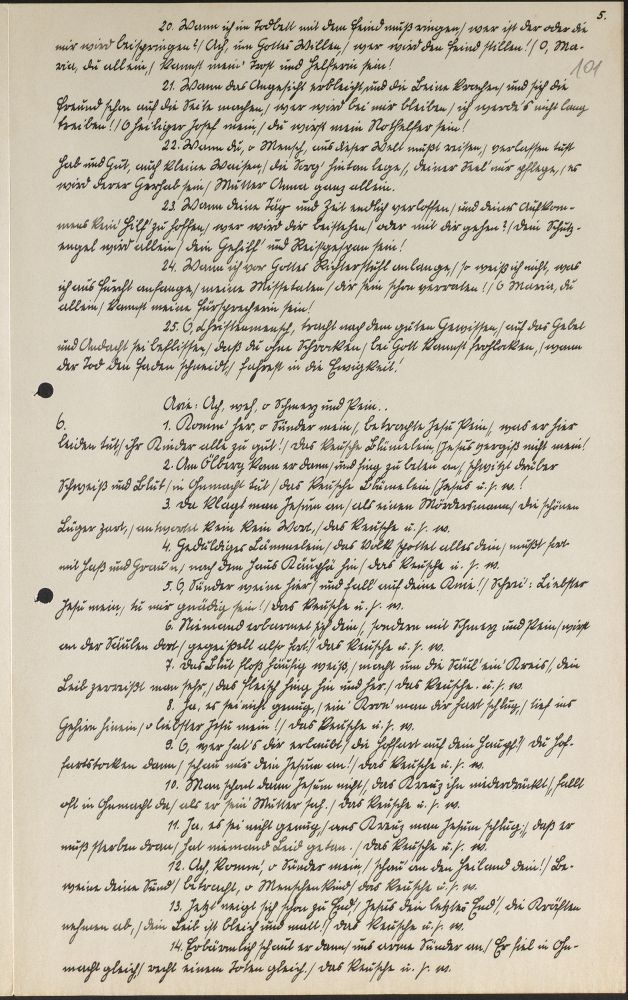 5.
101
20. Wann ich im Todbett mit dem Feind muß ringen,/ wer ist der oder die
mir wird beispringen?/ Ach, um Gottes Willen,/ wer wird den Feind stillen!/ O, Ma-
ria, du allein,/ kannst mein' Trost und Helferin sein!
21. Wann das Angesicht erbleicht, und die Beine krachen,/ und sich die
Freund schon auf die Seite machen,/ wer wird bei mir bleiben,/ ich werde's nicht lang
treiben!/ O heiliger Josef mein,/ du wirst mein Nothelfer sein!
22. Wann du, o Mensch, aus dieser Welt mußt reisen,/ verlassen tust
Hab und Gut, auch kleine Waisen,/ die Sorg' hintan lege,/ deiner Seel' nur pflege,/ es
wird derer Gerhab sein/ Mutter Anna ganz allein.
23. Wann deine Täg' und Zeit endlich verloffen,/ und deines Aufkom-
mens kein' Hilf' zu hoffen,/ wer wird dir beistehen/ oder mit dir gehen?/ dein Schutz-
engel wird allein/ dein Gehilf' und Reisgespan sein!
24. Wann ich vor Gottes Richterstuhl anlange,/ so weiß ich nicht, was
ich aus Furcht anfange,/ meine Missetaten/ dir sein schon verraten!/ O Maria, du
allein,/ kannst meine Fürsprecherin sein!
25. O, Christenmensch, tracht nach dem guten Gewissen,/ auf das Gebet
und Andacht sei beflissen,/ daß du ohne Schrocken,/ bei Gott kannst frohlocken,/ wann
der Tod den Faden schneidt,/ fahrest in die Ewigkeit!
Arie: Ach, weh, o Schmerz und Pein..
6. 1. Komm' her, o Sünder mein,/ betrachte Jesu Pein,/ was er hier
leiden tut/ ihr Kinder alle zu gut!/ das keusche Blümelein,/ Jesus vergiß nicht mein!
2. Am Ölberg kam er dann,/ und fing zu beten an,/ schwitzt drüber
Schweiß und Blut,/ in Ohnmacht tut/ das keusche Blümelein/ Jesus u. s. w.!
3. Da klagt man Jesum an,/ als einen Mördersmann,/ die schönen
Luger zart,/ antwortet kein Wort,/ das keusche u. s. w.
4. Geduldiges Lämmelein,/ das Volk spottet alles dein,/ mußt fort
mit Haß und Grau'n,/ nach dem Haus Kaiphä hin,/ das keusche u. s. w.
5. O, Sünder weine hier,/ und fall' auf deine Knie!/ Schrei': Liebster
Jesu mein,/ tu mir gnädig sein!/ das keusche u. s. w.
6. Niemand erbarmet sich dein,/ sondern mit Schmerz und Pein/ wirst
an der Säulen dort,/ gegeißelt also fort!/ das keusche u. s. w.
7. Das Blut floß häufig weiß,/ macht um die Säul' ein' Kreis,/ dein
Leib zerreißt man sehr,/ das Fleisch hing hin und her,/ das keusche u. s. w.
8. Ja, es sei nicht genug,/ ein' Kron' man dir hart schlug,/ tief ins
Gehirn hinein,/ o liebster Jesu mein!/ das keusche u. s. w.
9. O, wer hat's dir erlaubt/ die Hoffart auf dein Haupt?/ du Hof-
fartsdocken dann,/ schau nur dein Jesum an!/ das keusche u. s. w.
10. Man schont dann Jesum nicht,/ das Kreuz ihn niederdrückt,/ fallt
oft in Ohnmacht da/ als er sein' Mutter sah./ das keusche u. s. w.
11. Ja, es sei nicht genug,/ ans Kreuz man Jesum schlug;/ daß er
muß sterben dran,/ hat niemand Leid getan./ das keusche u. s. w.
12. Ach, komm', o Sünder mein,/ schau' an den Heiland dein!/ Be-
weine deine Sünd',/ betracht, o Menschenkind/ das keusche u. s. w.
13. Jetzt neigt sich schon zu End'/ Jesus dein letztes End',/ die Kräften
nehmen ab,/ dein Leib ist bleich und matt!/ das keusche u. s. w.
14. Erbärmlich schaut er dann/ uns arme Sünder an./ Er fiel in Ohn-
macht gleich,/ recht einem Toten gleich./ das keusche u. s. w.